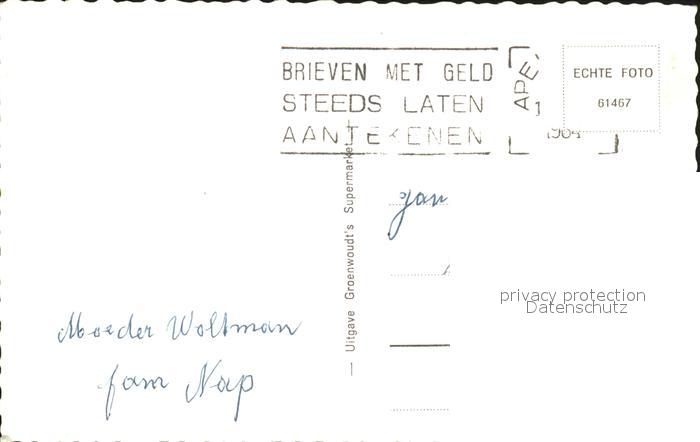 BRIEVEN MET GELD
STEEDS LATEN
AANTEKENEN
APE
1964
ECHTE FOTO
61467
— Uitgave Groenwoudt's Supermarket
Jan
privacy protection
Datenschutz
Moeder Woltman
fam Nap